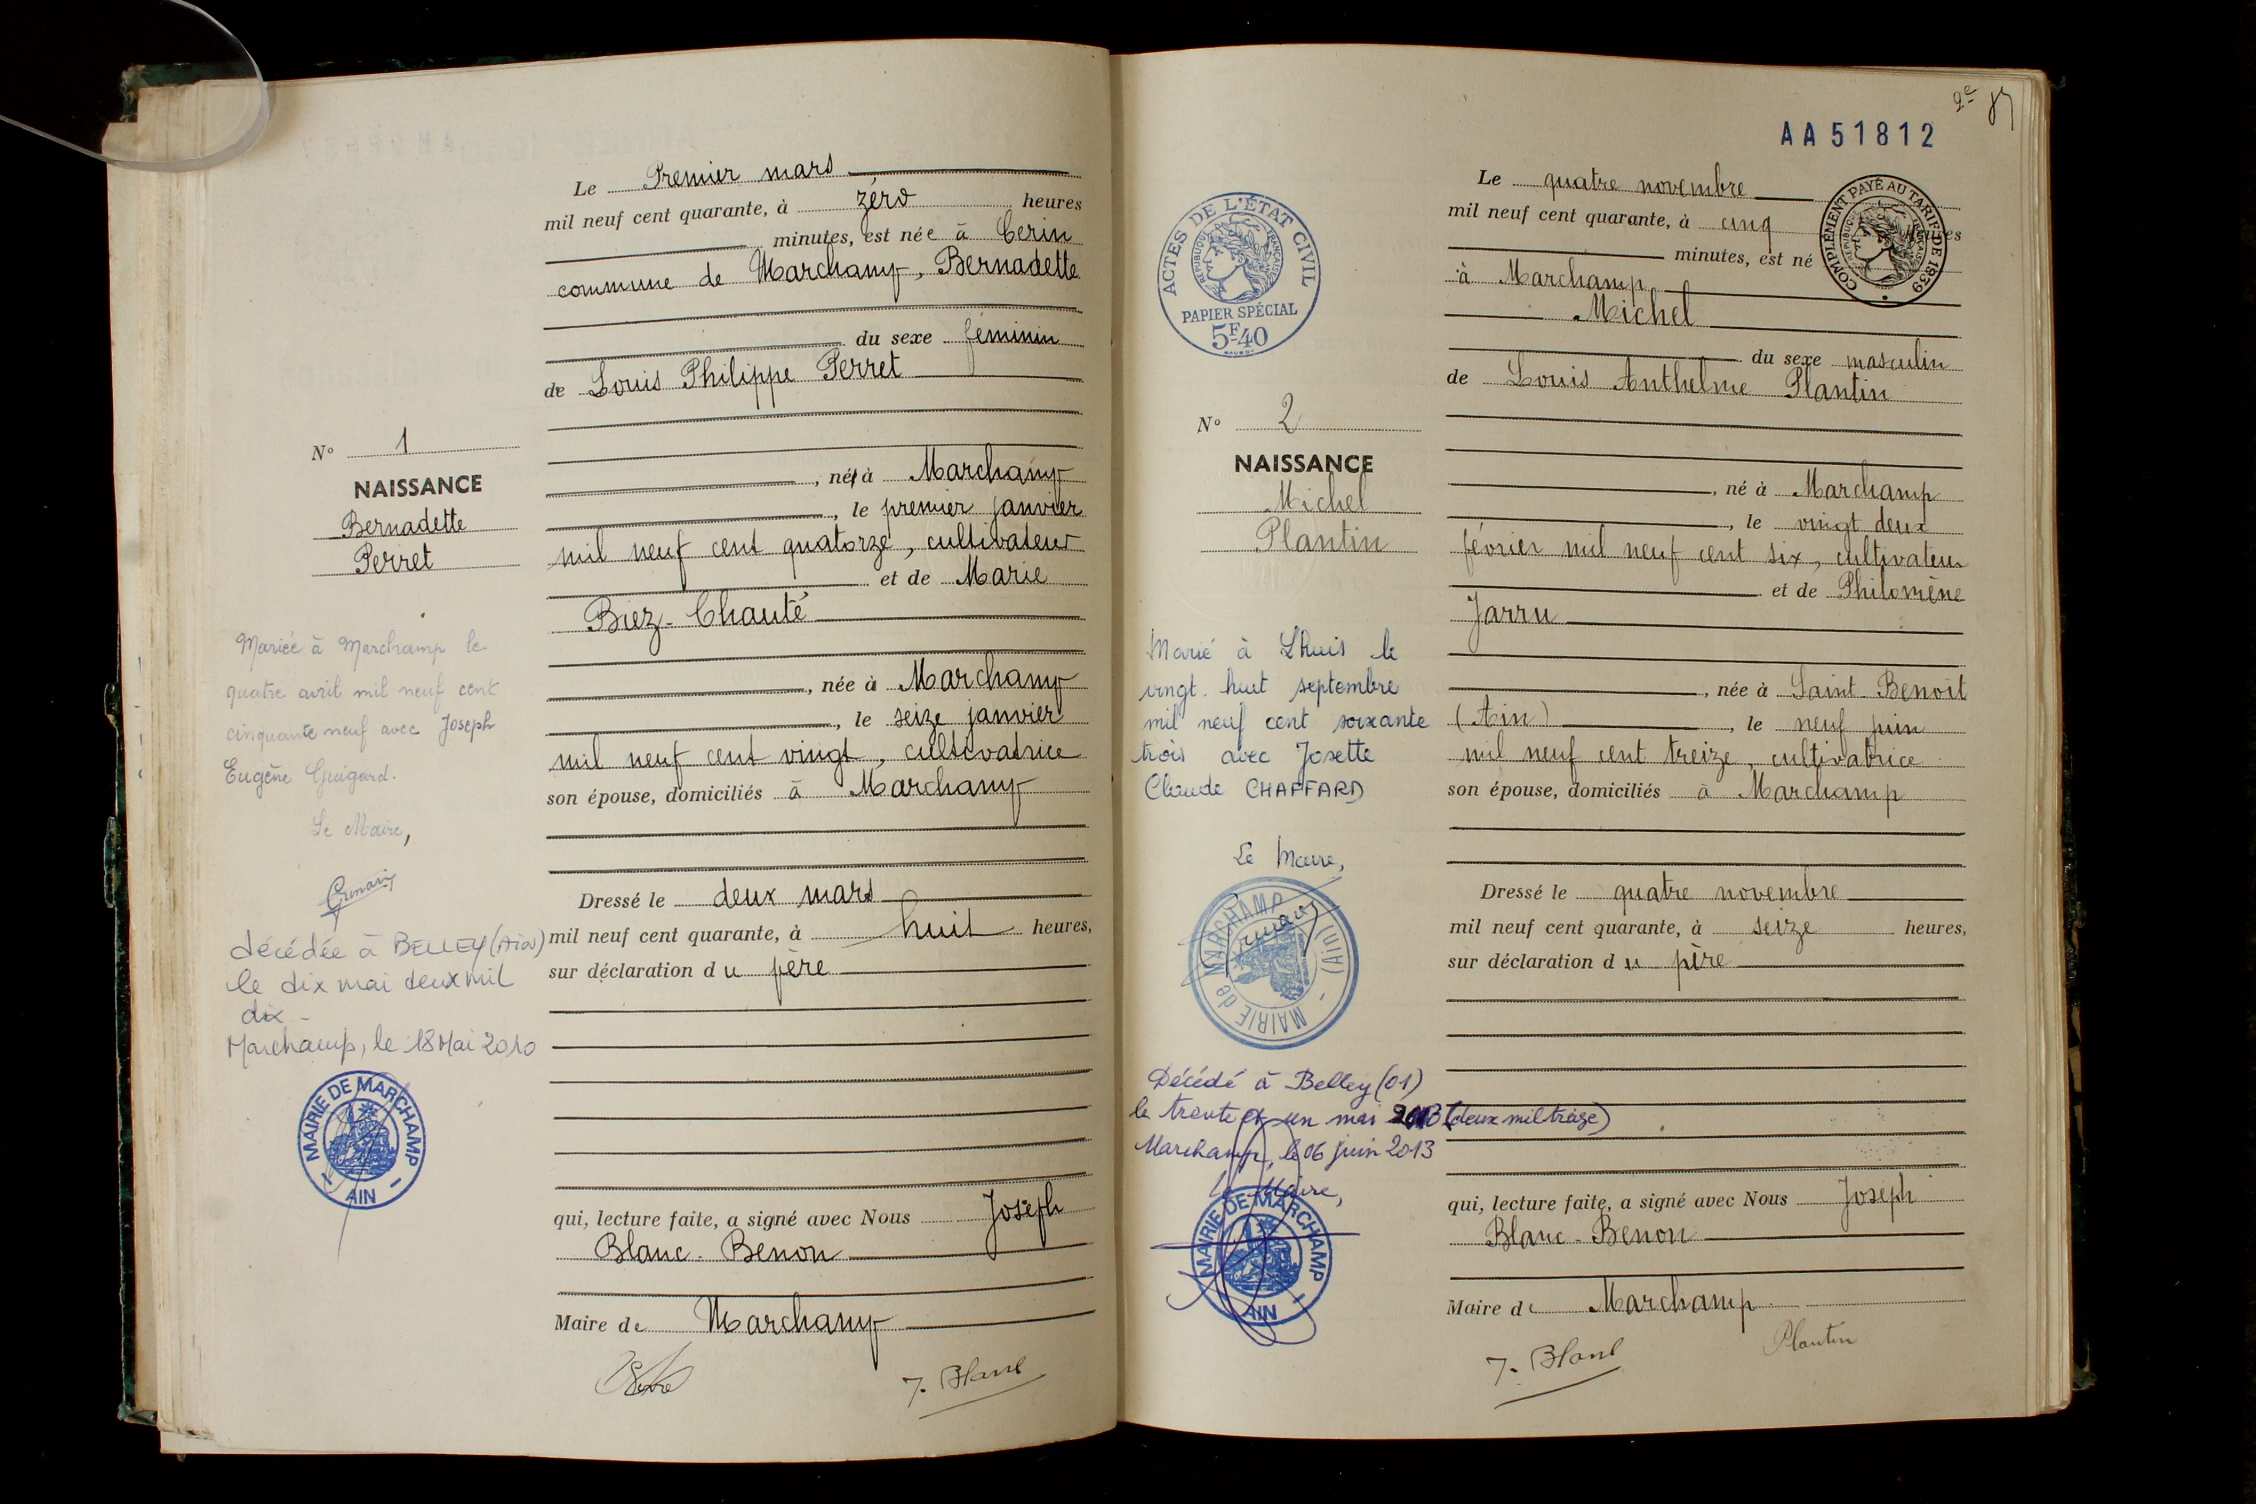 Le Premier mars
mil neuf cent quarante, à zéro heures
minutes, est née à Cerin
commune de Marchamp, Bernadette
du sexe féminin
de Louis Philippe Perret
N° 1
NAISSANCE
Bernadette
Perret
, né à Marchamp
, le premier janvier
mil neuf cent quatorze, cultivateur
et de Marie
Biez-Chauté
, née à Marchamp
, le seize janvier
mil neuf cent vingt, cultivatrice
son épouse, domiciliés à Marchamp
Dressé le deux mars
mil neuf cent quarante, à huit heures,
sur déclaration du père
qui, lecture faite, a signé avec Nous Joseph
Blanc-Benon
Maire de Marchamp
J. Blanc
Mariée à Marchamp le
quatre avril mil neuf cent
cinquante neuf avec Joseph
Eugène Guigard.
Le Maire,
décédée à BELLEY (Ain)
le dix mai deux mil
dix -
Marchamp, le 18 Mai 2010
MAIRIE DE MARCHAMP
- AIN -
2e
AA51812
ACTES DE L'ÉTAT CIVIL
RÉPUBLIQUE FRANÇAISE
PAPIER SPÉCIAL
5F40
COMPLÉMENT PAYÉ AU TARIF DE 1939
RÉPUBLIQUE FRANÇAISE
Le quatre novembre
mil neuf cent quarante, à cinq heures
minutes, est né
à Marchamp
Michel
du sexe masculin
de Louis Anthelme Plantin
N° 2
NAISSANCE
Michel
Plantin
, né à Marchamp
, le vingt deux
février mil neuf cent six, cultivateur
et de Philomène
Jarru
, née à Saint Benoit
(Ain) , le neuf juin
mil neuf cent treize, cultivatrice
son épouse, domiciliés à Marchamp
Dressé le quatre novembre
mil neuf cent quarante, à seize heures,
sur déclaration du père
qui, lecture faite, a signé avec Nous Joseph
Blanc-Benon
Maire de Marchamp
J. Blanc
Plantin
Marié à Lhuis le
vingt. huit septembre
mil neuf cent soixante
trois avec Josette
Claude CHAFFARD
Le Maire,
MAIRIE de MARCHAMP (AIN)
Décédé à Belley (01)
le trente et un mai 2013 (deux mil treize)
Marchamp, le 06 juin 2013
Le Maire,
MAIRIE DE MARCHAMP
AIN -